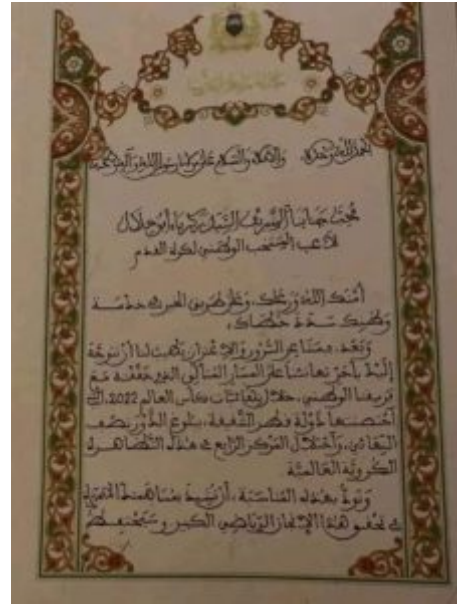 الحمد لله وحده، والصلاة والسلام على مولانا رسول الله وآله وصحبه
محب جنابنا الشريف السيد زكرياء أبو خلال
لاعب المنتخب الوطني لكرة القدم
أمنك الله ورعاك، وعلى طريق الخير
وبعد، فمن السرور والاعتزاز
إليك بأحر تهانئنا على المسار المثالي الذي حققته مع
فريقنا الوطني، خلال نهائيات كأس العالم 2022، التي
احتضنتها دولة قطر الشقيقة، ببلوغ الدور نصف
النهائي، واحتلال المركز الرابع في هذه التظاهرة
الكروية العالمية
ونود بهذه المناسبة، أن نشيد بمساهمتك
في تحقيق هذا الإنجاز الرياضي الكبير